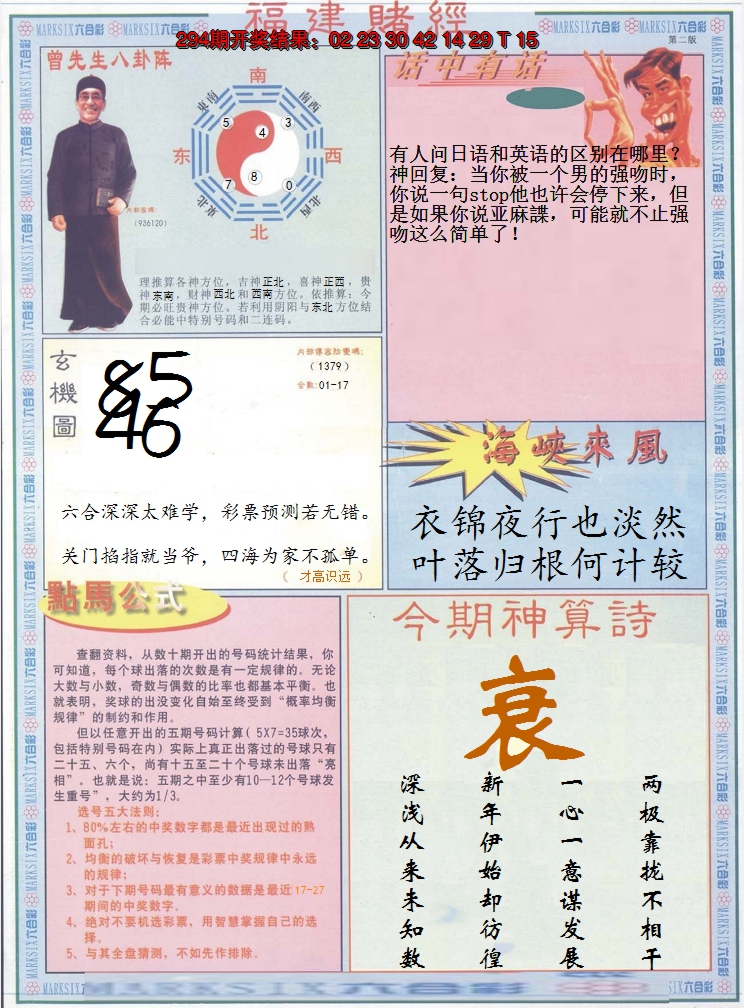 福建賭經
294期开奖结果：02 23 30 42 14 29 T 15
MARKSIX六合彩
第二版
曾先生八卦阵
南
東南
南西
5
4
3
东
西
7
8
0
東北
北西
北
內部密碼:
（936120）
理推算各神方位，吉神正北，喜神正西，贵
神东南，财神西北和西南方位。依推算：今
期必旺贵神方位。若利用阴阳与东北方位结
合必能中特别号码和二连码。
话中有话
有人问日语和英语的区别在哪里？
神回复：当你被一个男的强吻时，
你说一句stop他也许会停下来，但
是如果你说亚麻諜，可能就不止强
吻这么简单了！
玄機圖
85
46
（1379）
合数:01-17
六合深深太难学，彩票预测若无错。
关门掐指就当爷，四海为家不孤单。
（ 才高识远 ）
海峽來風
衣锦夜行也淡然
叶落归根何计较
點馬公式
查翻资料，从数十期开出的号码统计结果，你
可知道，每个球出落的次数是有一定规律的。无论
大数与小数，奇数与偶数的比率也都基本平衡。也
就表明，奖球的出没变化自始至终受到“概率均衡
规律”的制约和作用。
但以任意开出的五期号码计算（ 5X7=35球次，
包括特别号码在内）实际上真正出落过的号球只有
二十五、六个，尚有十五至二十个号球未出落“亮
相”。也就是说：五期之中至少有10—12个号球发
生重号”，大约为1/3。
选号五大法则：
1、80%左右的中奖数字都是最近出现过的熟
面孔；
2、均衡的破坏与恢复是彩票中奖规律中永远
的规律；
3、对于下期号码最有意义的数据是最近17-27
期间的中奖数字。
4、绝对不要机选彩票，用智慧掌握自己的选
择。
5、与其全盘猜测，不如先作排除。
今期神算詩
衰
两极靠拢不相干
一心一意谋发展
新年伊始却彷徨
深浅从来未知数